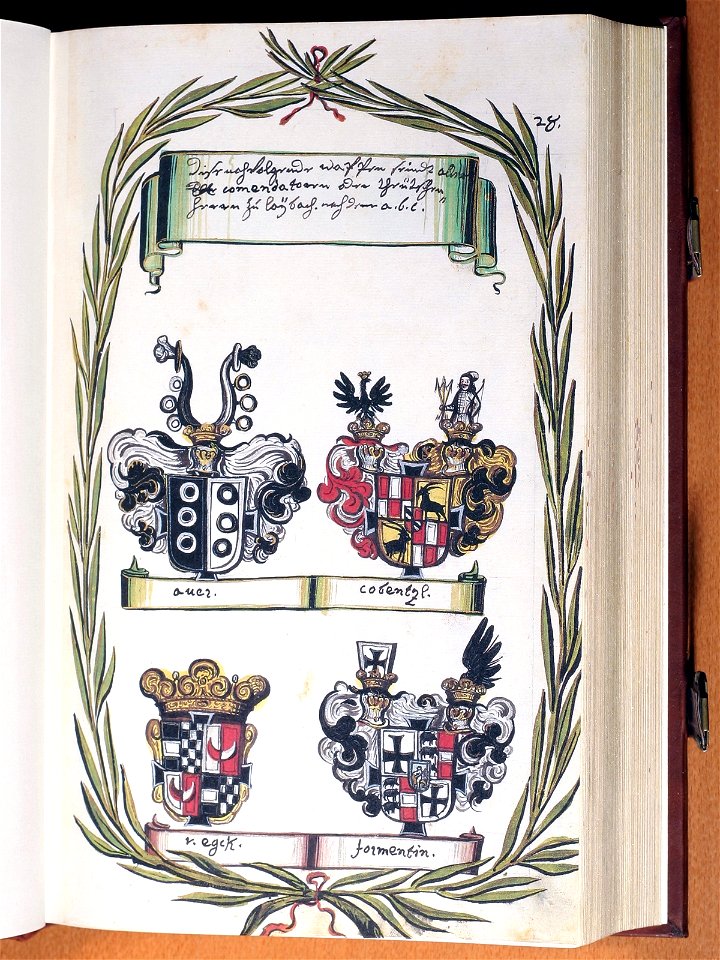 28.
Dise nachfolgende wappen seindt
comendatoern oder theütschen
herrn zu laybach. nach dem a.b.c.
auer.
cobentzl.
v. egck.
formentin.